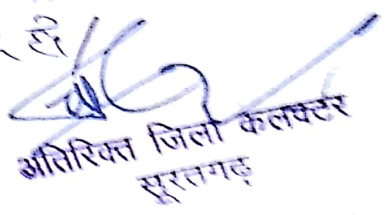 हो
अतिरिक्त जिला कलक्टर
सूरतगढ़